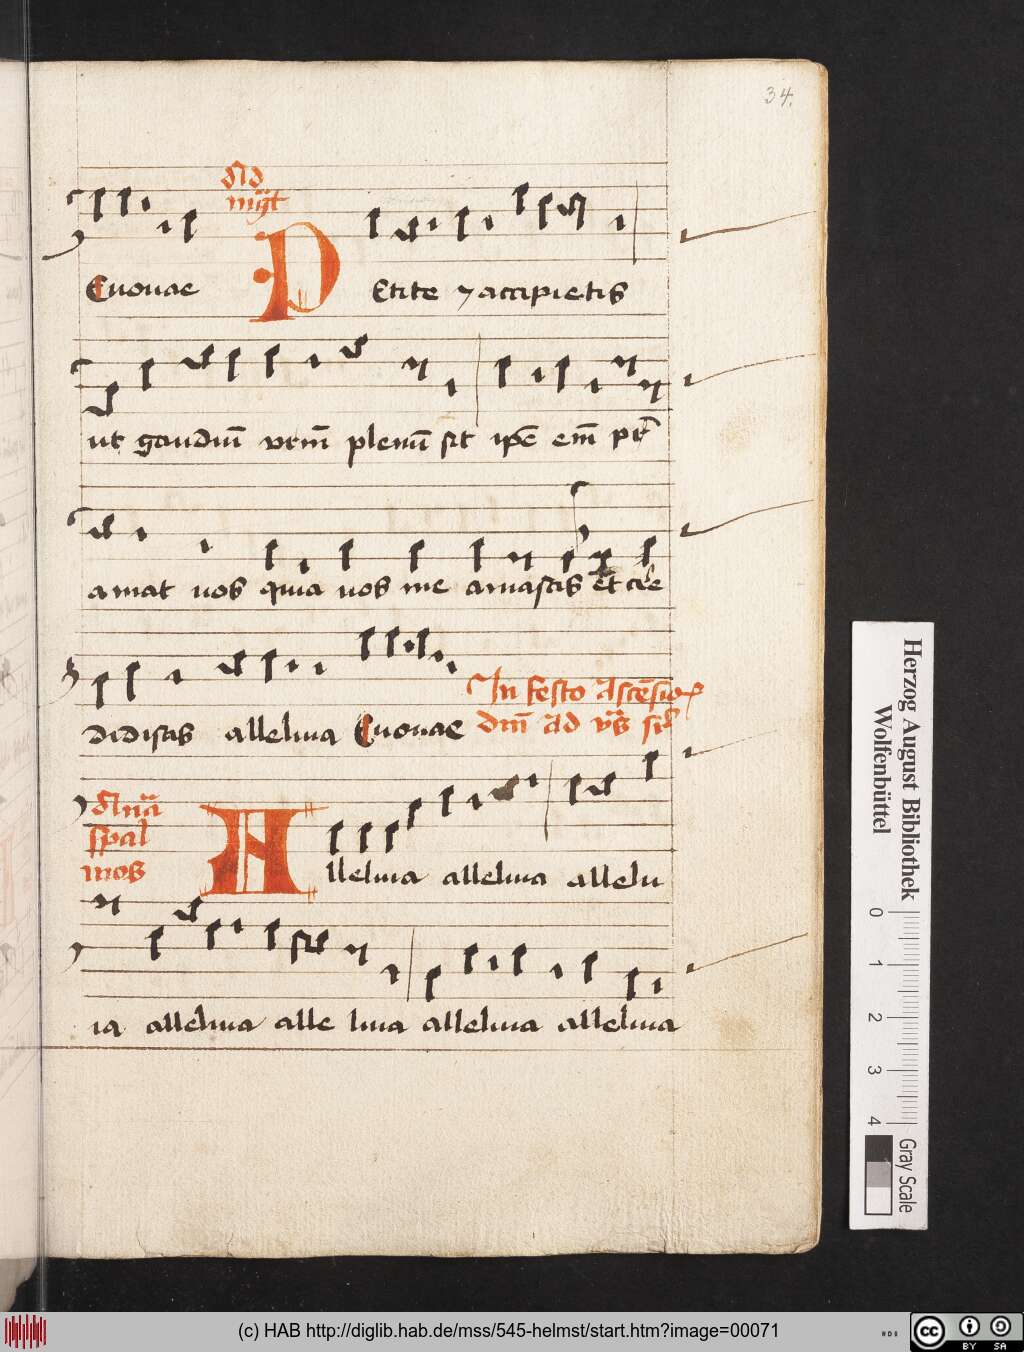 34.
Ad
mgt
Euouae PEtite ⁊ accipietis
ut gaudiū vrm̄ plenū sit ipē em̄ pr̄
amat uos quia uos me amastis et cre
didistis alleluia Euouae In festo Ascēsio
dm̄ ad
Alleluia alleluia allelu
ia alleluia alle luia alleluia alleluia
Herzog August Bibliothek
Wolfenbüttel
0 1 2 3 4
Gray Scale
(c) HAB http://diglib.hab.de/mss/545-helmst/start.htm?image=00071
cc BY SA